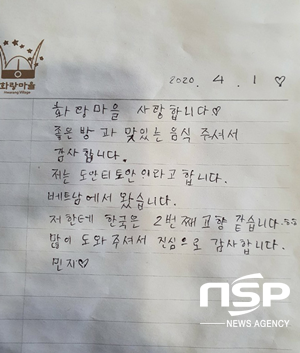 화랑마을
Hwarang Village
2020. 4. 1 ♡
화랑마을 사랑합니다♡
좋은방과 맛있는 음식 주셔서
감사합니다.
저는 도안티토안이라고 합니다.
베트남에서 왔습니다.
저한테 한국은 2번째 고향 같습니다.
많이 도와주셔서 진심으로 감사합니다.
민지♡
NSP
NEWS AGENCY